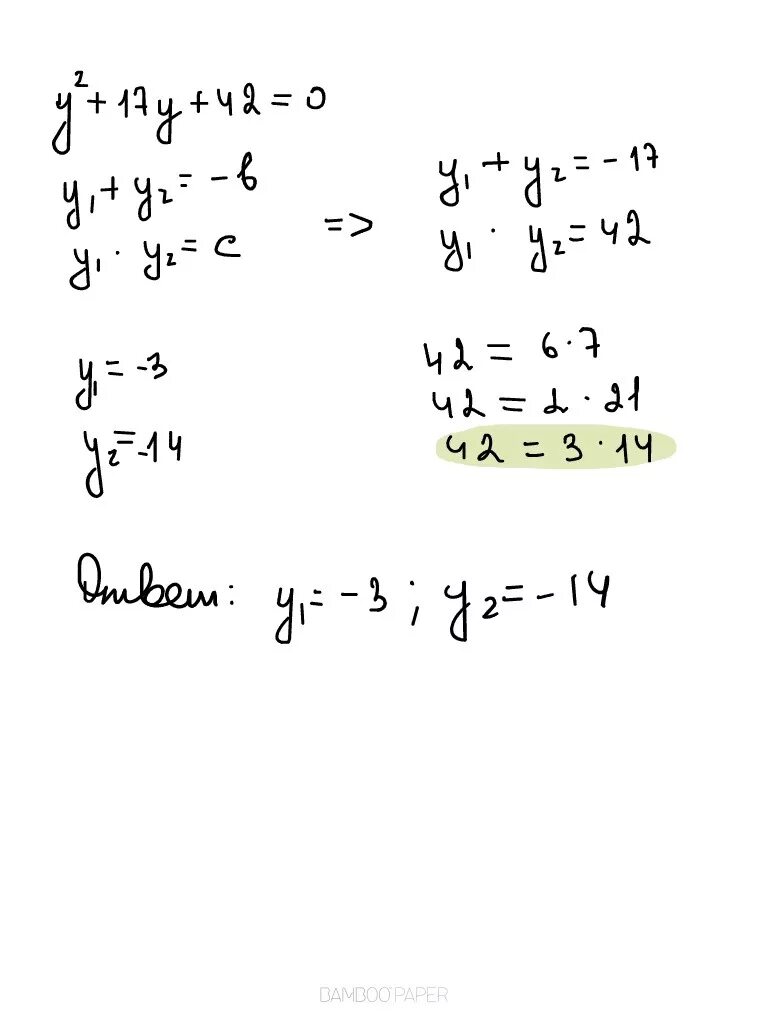 y² + 17y + 42 = 0
y₁ + y₂ = -b
y₁ · y₂ = c
=>
y₁ + y₂ = -17
y₁ · y₂ = 42
y₁ = -3
y₂ = -14
42 = 6 · 7
42 = 2 · 21
42 = 3 · 14
Ответ: y₁ = -3 ; y₂ = -14
BAMBOO PAPER